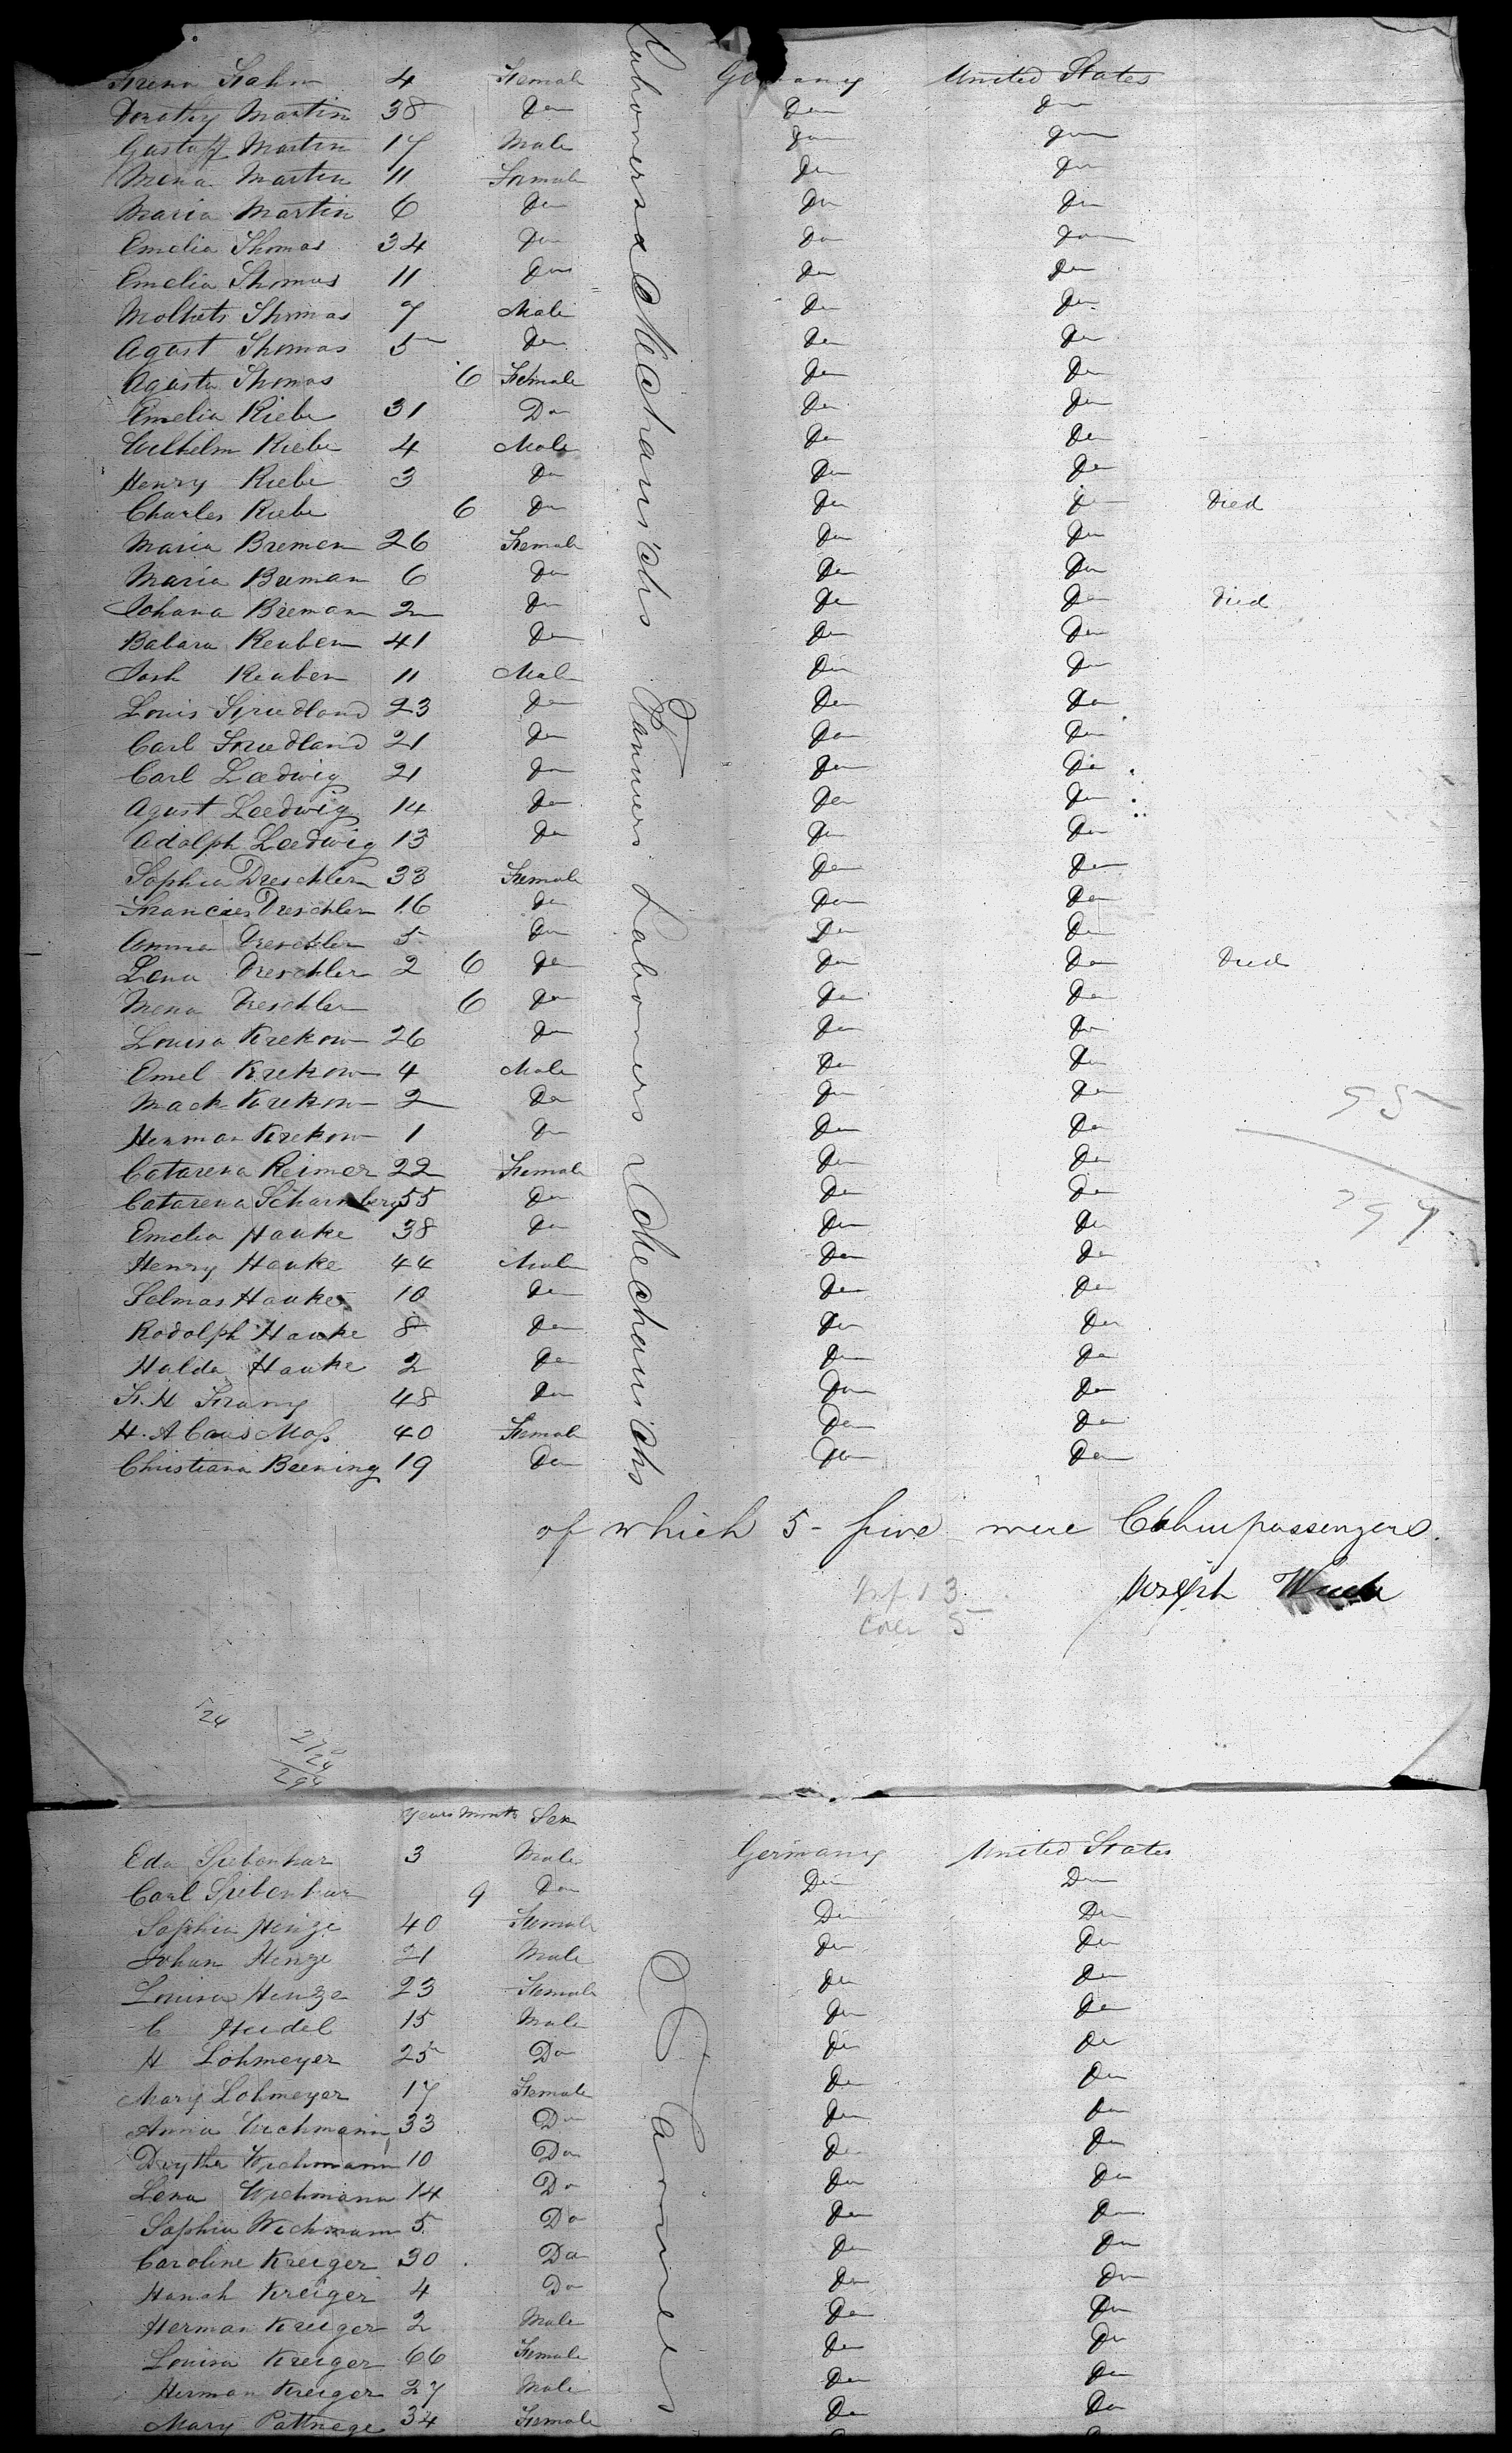 Frena Hahn 4 Female Germany United States
Dorothy Martin 38 Do Do Do
Gustaff Martin 17 Male Do Do
Mena Martin 11 Female Do Do
Maria Martin 6 Do Do Do
Emelia Thomas 34 Do Do Do
Emelia Thomas 11 Do Do Do
Thomas 7 Male Do Do
Agust Thomas 5 Do Do Do
Agusta Thomas 6 Female Do Do
Emelia Riebe 31 Do Do Do
Wilhelm Riebe 4 Male Do Do
Henry Riebe 3 Do Do Do
Charles Riebe 6 Do Do Do Died
Maria Bremen 26 Female Do Do
Maria Breman 6 Do Do Do
Johana Breman 2 Do Do Do Died
Babara Reuben 41 Do Do Do
Josh Reuben 11 Male Do Do
Louis 23 Do Do Do
Carl 21 Do Do Do
Carl Ledwig 21 Do Do Do
Agust Ledwig 14 Do Do Do
Adolph Ledwig 13 Do Do Do
Sophia Dreschler 33 Female Do Do
Francies Dreschler 16 Do Do Do
Anna Dreschler 5 Do Do Do
Lena Dreschler 2 6 Do Do Do Died
Mena Dreschler 6 Do Do Do
Louisa Krekow 26 Do Do Do
Emel Krekow 4 Male Do Do
Mack Krekow 2 Do Do Do
Herman Krekow 1 Do Do Do
Catarena Reimer 22 Female Do Do
Catarena Scharnberg 55 Do Do Do
Emelia Hauke 38 Do Do Do
Henry Hauke 44 Male Do Do
Selmas Hauke 10 Do Do Do
Rodolph Hauke 8 Do Do Do
Hulda Hauke 2 Do Do Do
F. H Frany 48 Do Do Do
H. A Caus Moss 40 Female Do Do
Christiana Beening 19 Do Do Do
Labourers & Mechanichs Farmers Labourers & Mechanichs
95
299
of which 5 - five were Cabinpassengers.
Inf. 13
Joseph
5
24
270
24
294
Years Months Sex
Eda Siebenhar 3 Male Germany United States
Carl Siebenhar 9 Do Do Do
Sophia Henze 40 Female Do Do
Johan Henze 21 Male Do Do
Louisa Henze 23 Female Do Do
C Heidel 15 Male Do Do
H Lohmeyer 25 Do Do Do
Mary Lohmeyer 17 Female Do Do
Anna Wichmann 33 Do Do Do
Wichmann 10 Do Do Do
Lena Wichmann 14 Do Do Do
Sophia Wichmann 5 Do Do Do
Caroline Kreiger 30 Do Do Do
Hanah Kreiger 4 Do Do Do
Herman Kreiger 2 Male Do Do
Louisa Kreiger 66 Female Do Do
Herman Kreiger 27 Male Do Do
Mary Pattnege 34 Female Do Do
Farmers